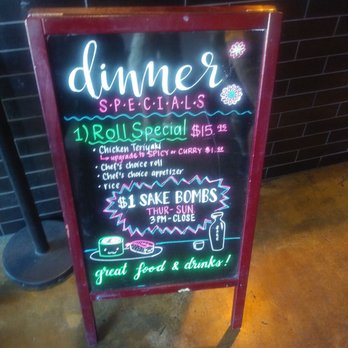 dinner
SPECIALS
1) Roll Special $15.95
• Chicken Teriyaki
↳ upgrade to SPICY or CURRY $1.00
• Chef's choice roll
• Chef's choice appetizer
• rice
$1 SAKE BOMBS
THUR-SUN
3PM-CLOSE
great food & drinks!